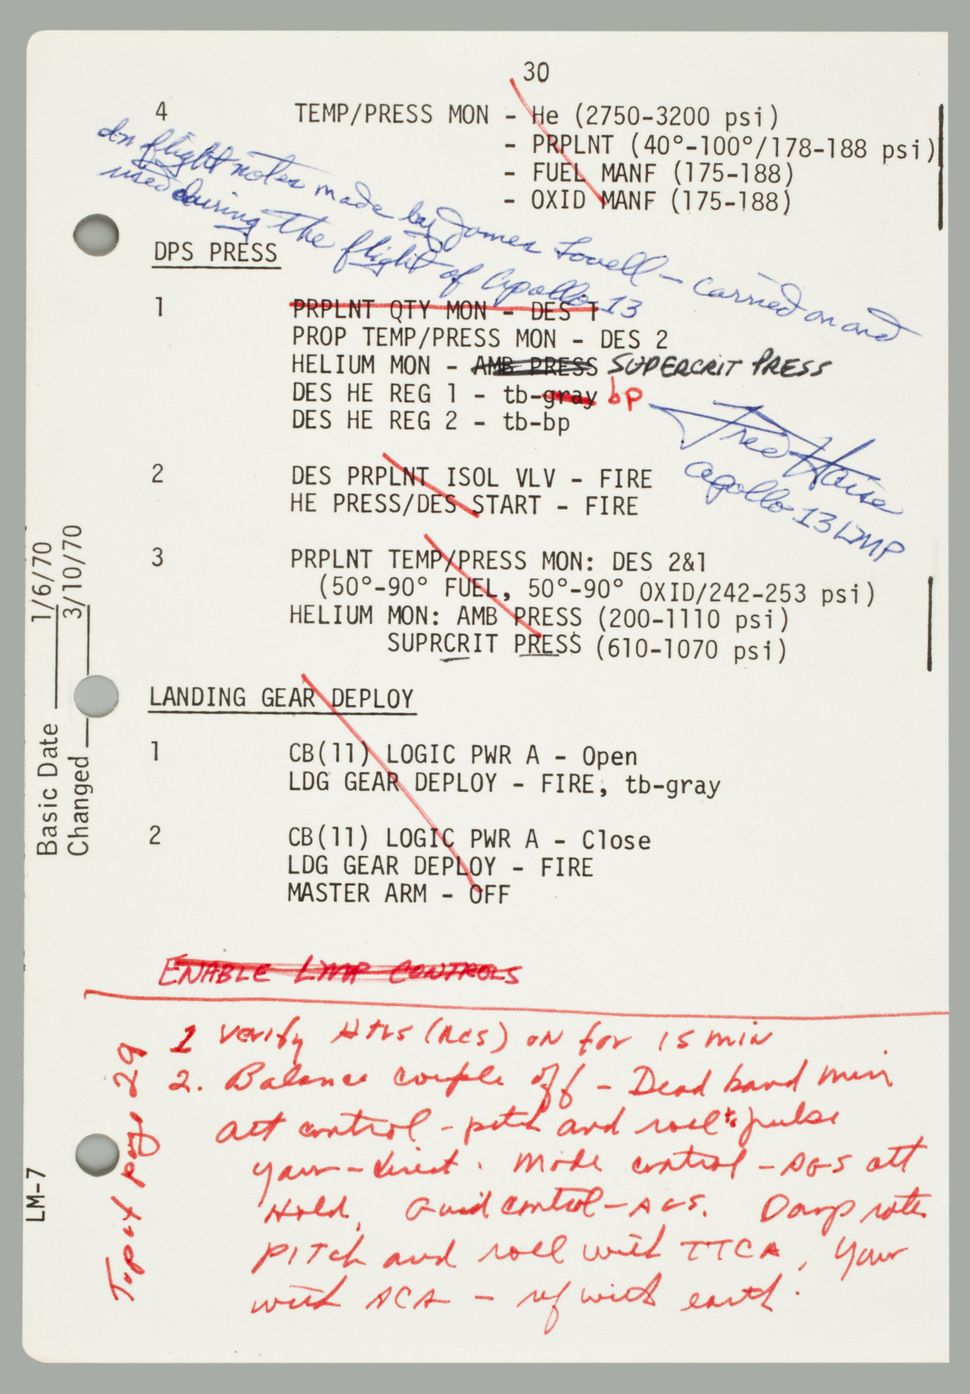 30
4 TEMP/PRESS MON - He (2750-3200 psi)
- PRPLNT (40°-100°/178-188 psi)
- FUEL MANF (175-188)
- OXID MANF (175-188)
In flight notes made by James Lovell - carried on and
used during the flight of Apollo 13
DPS PRESS
1 PRPLNT QTY MON - DES 1
PROP TEMP/PRESS MON - DES 2
HELIUM MON - AMB PRESS SUPERCRIT PRESS
DES HE REG 1 - tb-gray bp
DES HE REG 2 - tb-bp
Fred Haise
Apollo 13 LMP
2 DES PRPLNT ISOL VLV - FIRE
HE PRESS/DES START - FIRE
3 PRPLNT TEMP/PRESS MON: DES 2&1
(50°-90° FUEL, 50°-90° OXID/242-253 psi)
HELIUM MON: AMB PRESS (200-1110 psi)
SUPRCRIT PRESS (610-1070 psi)
Basic Date 1/6/70
Changed 3/10/70
LANDING GEAR DEPLOY
1 CB(11) LOGIC PWR A - Open
LDG GEAR DEPLOY - FIRE, tb-gray
2 CB(11) LOGIC PWR A - Close
LDG GEAR DEPLOY - FIRE
MASTER ARM - OFF
ENABLE LMP CONTROLS
1 Verify Htrs (RCS) on for 15 min
2. Balance couple off - Dead band min
att control - pitch and roll to pulse
yaw - direct. Mode control - AGS att
Hold, Guid control - AGS. Damp rates
pitch and roll with TTCA, Yaw
with ACA - ref with earth.
Top of page 29
LM-7